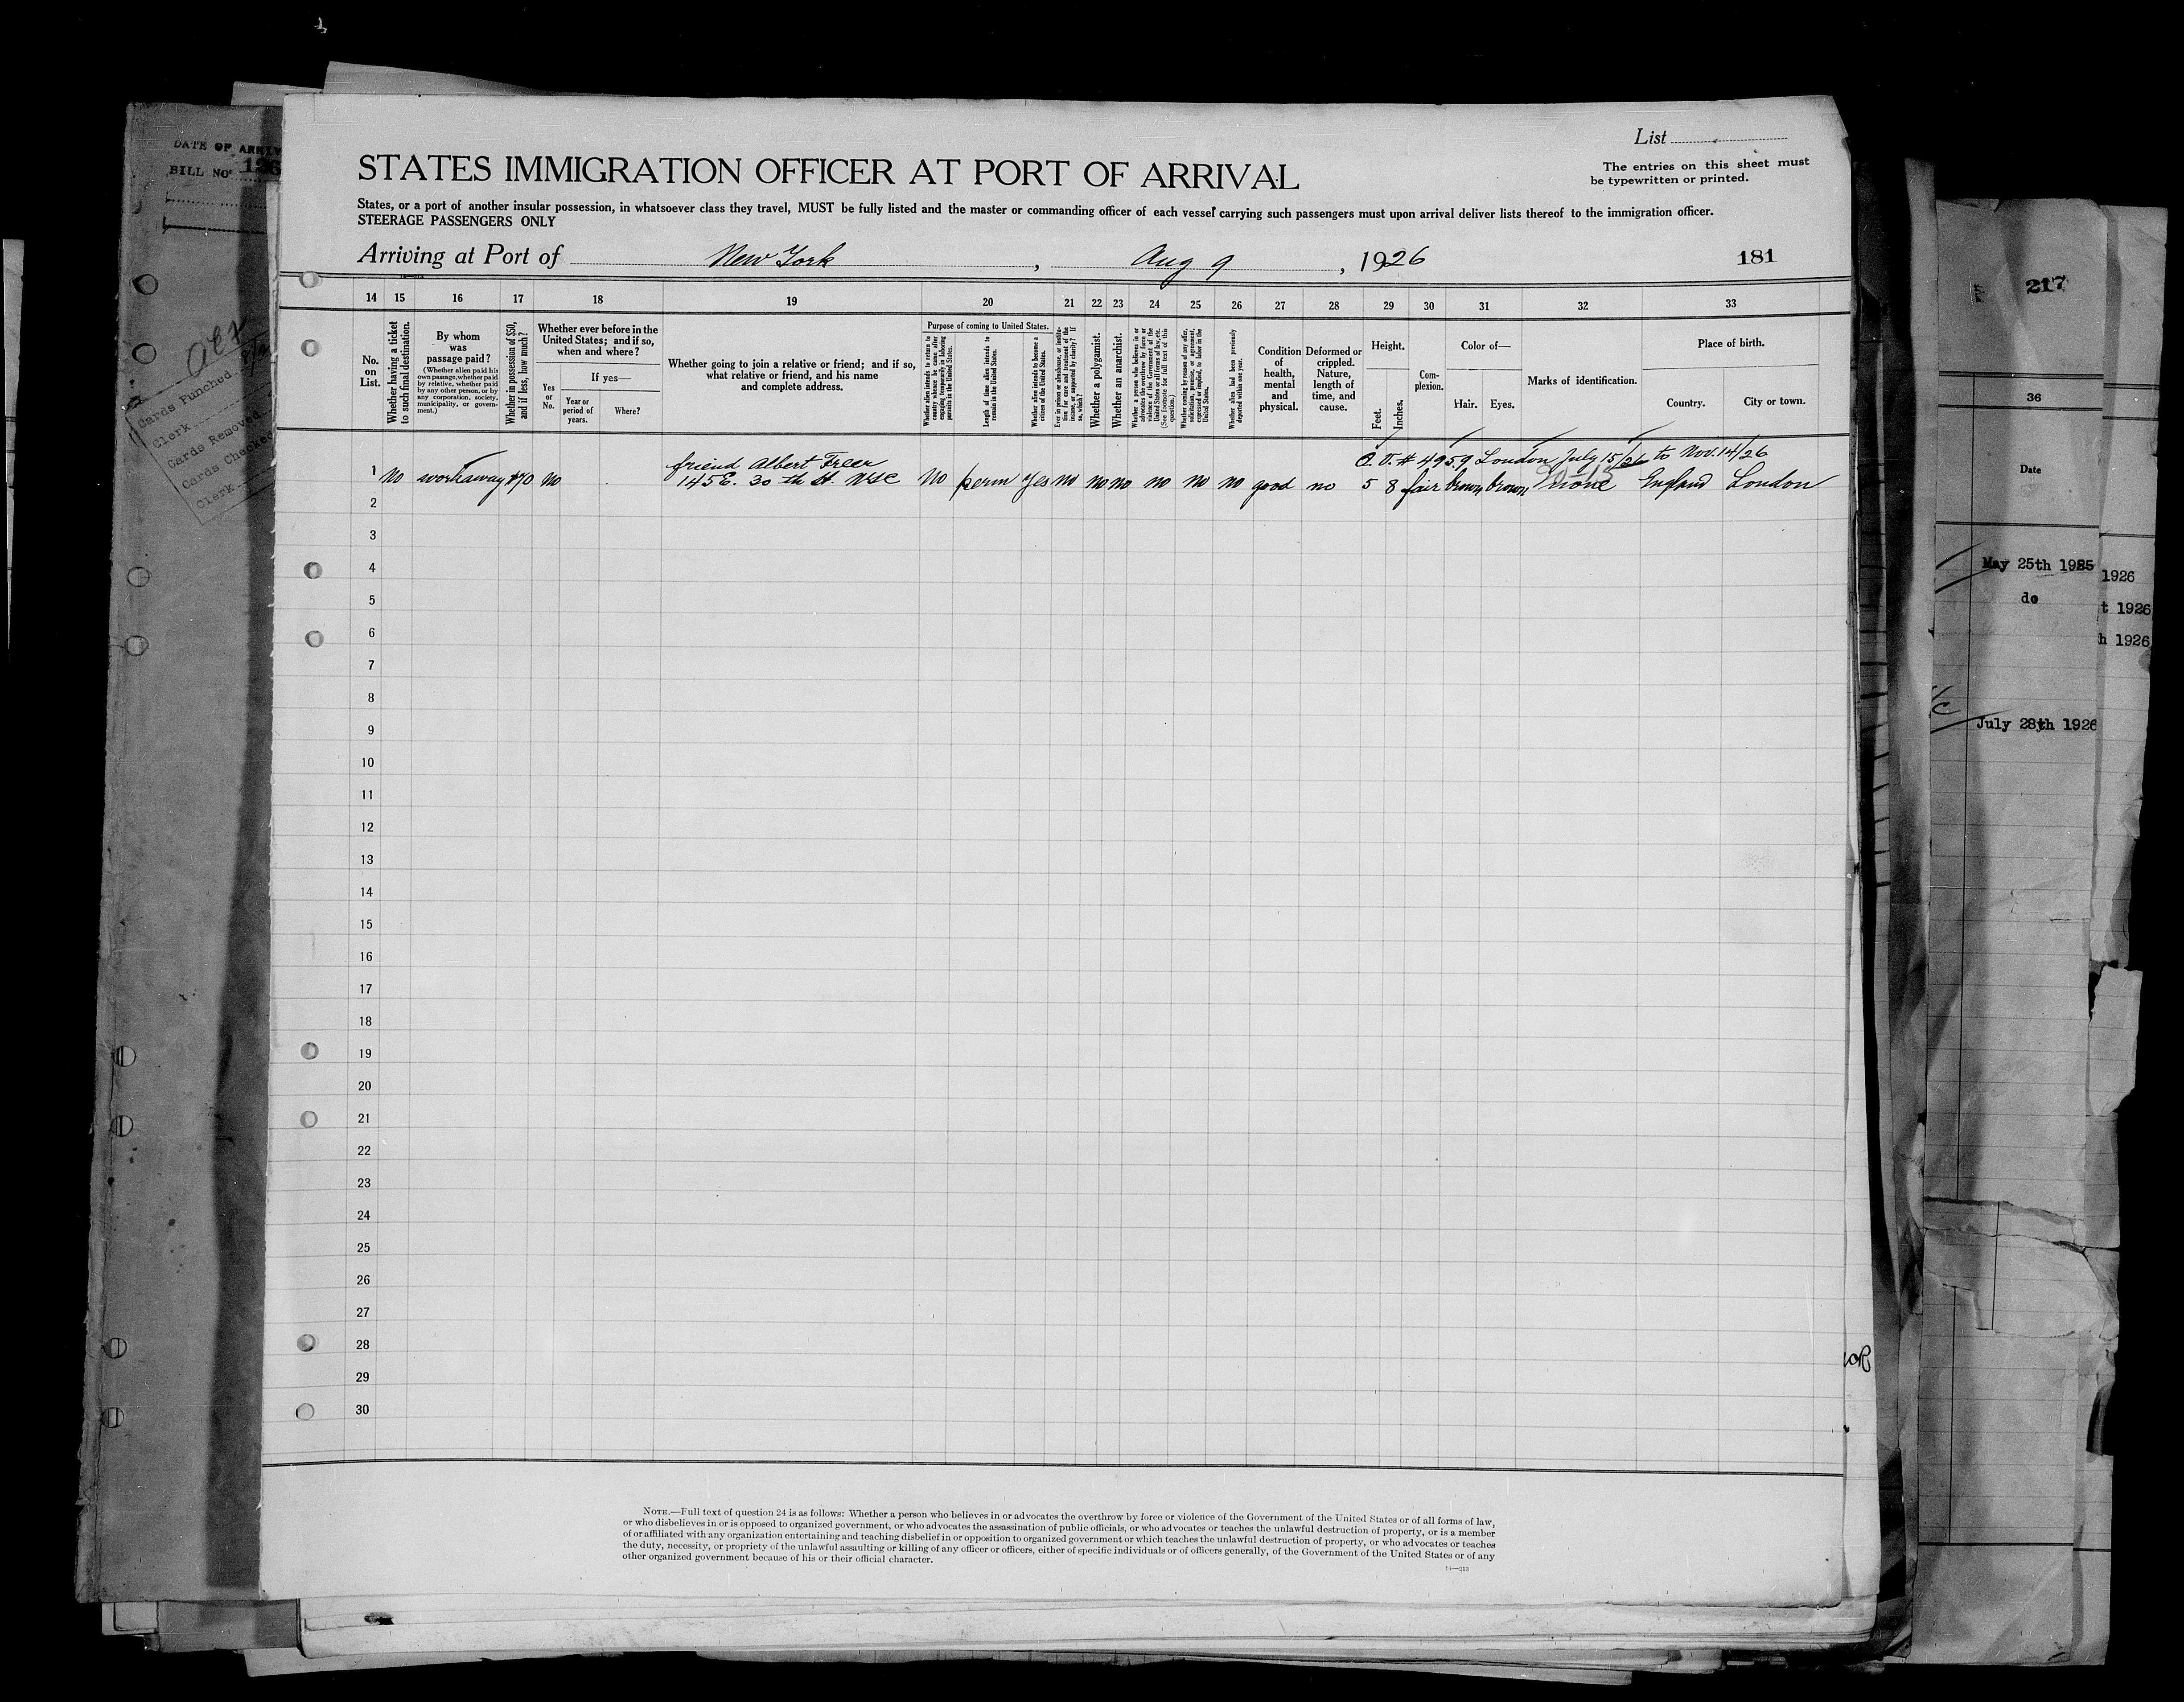 DATE OF ARRIV
BILL NO. 126
Cards Punched
Clerk
Cards Removed
Cards Checked
Clerk
List
The entries on this sheet must
be typewritten or printed.
STATES IMMIGRATION OFFICER AT PORT OF ARRIVAL
States, or a port of another insular possession, in whatsoever class they travel, MUST be fully listed and the master or commanding officer of each vessel carrying such passengers must upon arrival deliver lists thereof to the immigration officer.
STEERAGE PASSENGERS ONLY
Arriving at Port of New York, Aug 9, 1926
181
14 15 16 17 18 19 20 21 22 23 24 25 26 27 28 29 30 31 32 33
No. on List.
Whether having a ticket to such final destination.
By whom was passage paid?
(Whether alien paid his own passage, whether paid by relative, whether paid by any other person, or by any corporation, society, municipality, or government.)
Whether in possession of $50, and if less, how much?
Whether ever before in the United States; and if so, when and where?
Yes or No.
If yes—
Year or period of years.
Where?
Whether going to join a relative or friend; and if so, what relative or friend, and his name and complete address.
Purpose of coming to United States.
Whether alien intends to return to country whence he came after engaging temporarily in laboring pursuits in the United States.
Length of time alien intends to remain in the United States.
Whether alien intends to become a citizen of the United States.
Ever in prison or almshouse, or institution for care and treatment of the insane, or supported by charity? If so, which?
Whether a polygamist.
Whether an anarchist.
Whether a person who believes in or advocates the overthrow by force or violence of the Government of the United States or all forms of law, etc. (See footnote for full text of this question.)
Whether coming by reason of any offer, solicitation, promise, or agreement, expressed or implied, to labor in the United States.
Whether alien had been previously deported within one year.
Condition of health, mental and physical.
Deformed or crippled. Nature, length of time, and cause.
Height.
Feet.
Inches.
Complexion.
Color of—
Hair.
Eyes.
Marks of identification.
Place of birth.
Country.
City or town.
friend Albert Freer
145 E. 30 th St. NYC
Q. V. # 4959 London July 15/26 to Nov. 14/26
1 No workaway $70 No No perm Yes no no no no no no good no 5 8 fair brown brown none England London
2
3
4
5
6
7
8
9
10
11
12
13
14
15
16
17
18
19
20
21
22
23
24
25
26
27
28
29
30
NOTE.—Full text of question 24 is as follows: Whether a person who believes in or advocates the overthrow by force or violence of the Government of the United States or of all forms of law,
or who disbelieves in or is opposed to organized government, or who advocates the assassination of public officials, or who advocates or teaches the unlawful destruction of property, or is a member
of or affiliated with any organization entertaining and teaching disbelief in or opposition to organized government or which teaches the unlawful destruction of property, or who advocates or teaches
the duty, necessity, or propriety of the unlawful assaulting or killing of any officer or officers, either of specific individuals or of officers generally, of the Government of the United States or of any
other organized government because of his or their official character.
14—313
217
36
Date
May 25th 1925
do
July 28th 1926
1926
t 1926
h 1926